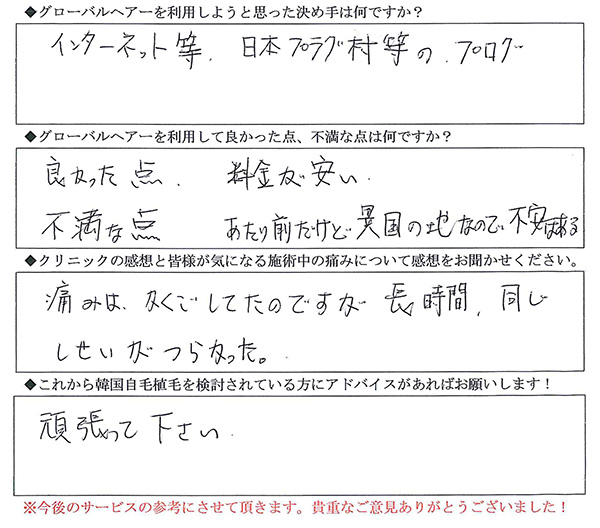 ◆グローバルヘアーを利用しようと思った決め手は何ですか？
インターネット等、日本プラグ村等の、ブログ
◆グローバルヘアーを利用して良かった点、不満な点は何ですか？
良かった点、 料金が安い、
不満な点 あたり前だけど異国の地なので、不安はある
◆クリニックの感想と皆様が気になる施術中の痛みについて感想をお聞かせください。
痛みは、かくごしてたのですが 長時間、同じ
しせいがつらかった。
◆これから韓国自毛植毛を検討されている方にアドバイスがあればお願いします！
頑張って下さい、
※今後のサービスの参考にさせて頂きます。貴重なご意見ありがとうございました！